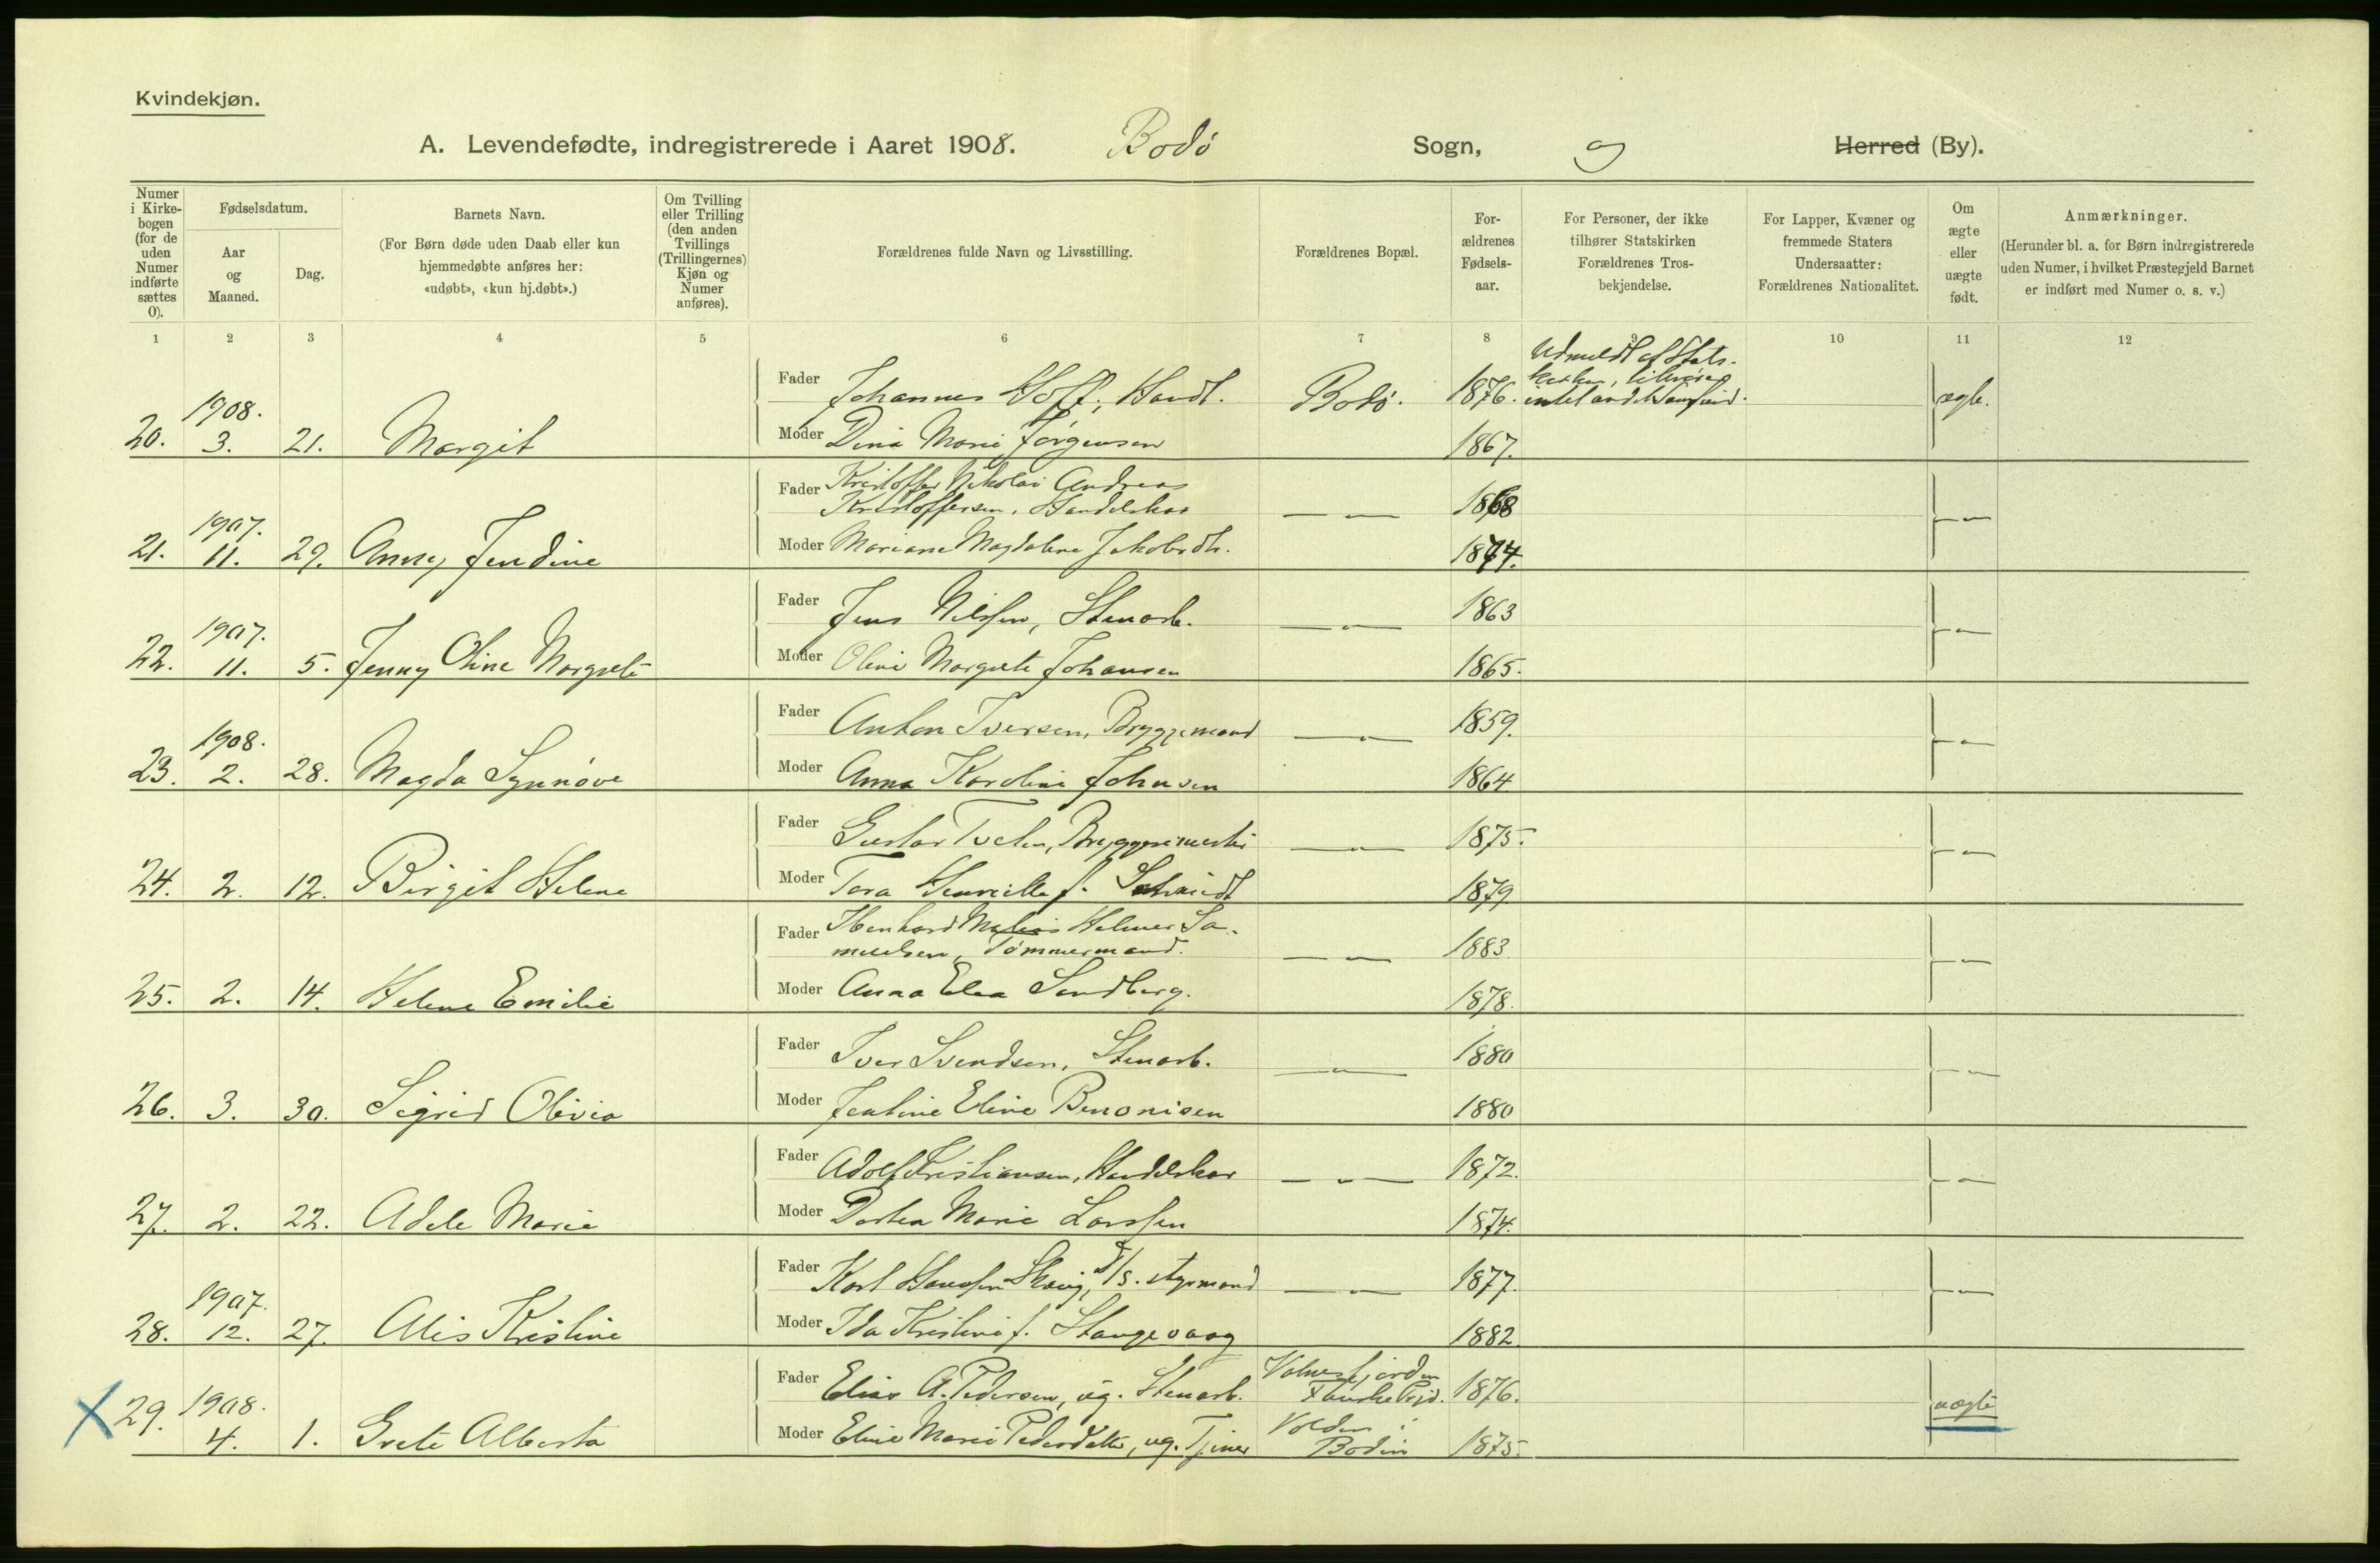 Kvindekjøn.
A. Levendefødte, indregistrerede i Aaret 1908. Bodø Sogn, Herred (By).
Numer i Kirkebogen (for de uden Numer indførte sættes 0).
Fødselsdatum.
Aar og Maaned.
Dag.
Barnets Navn.
(For Børn døde uden Daab eller kun hjemmedøbte anføres her: «udøbt», «kun hj.døbt».)
Om Tvilling eller Trilling (den anden Tvillings (Trillingernes) Kjøn og Numer anføres).
Forældrenes fulde Navn og Livsstilling.
Forældrenes Bopæl.
For-ældrenes Fødsels-aar.
For Personer, der ikke tilhører Statskirken Forældrenes Tros-bekjendelse.
For Lapper, Kvæner og fremmede Staters Undersaatter: Forældrenes Nationalitet.
Om ægte eller uægte født.
Anmærkninger.
(Herunder bl. a. for Børn indregistrerede uden Numer, i hvilket Præstegjeld Barnet er indført med Numer o. s. v.)
1 2 3 4 5 6 7 8 9 10 11 12
Udmeldt af Stats-
kirken, tilhører
intet andet Samfund.
Fader Johannes Hoff, Handl. Bodø. 1876. ægte.
1908.
20. 3. 21. Margit Moder Dina Marie Jørgensen 1867.
Fader Kristoffer Nikolai Andreas
Kristoffersen, Handelskar — " — 1868 — " —
1907.
21. 11. 29. Anny Jendine Moder Mariane Magdalena Jakobsdtr. 1874.
Fader Jens Nilssen, Stenarb. — " — 1863 — " —
1907.
22. 11. 5. Jenny Oline Margrete Moder Oline Margrete Johansen 1865.
Fader Anton Iversen, Bryggemand — " — 1859. — " —
1908.
23. 2. 28. Magda Synnöve Moder Anna Karoline Johnsen 1864
Fader Gustav Tveten, Bryggerimester — " — 1875. — " —
24. 2. 12. Birgit Helene Moder Tora Henriette f. Schmidt 1879
Fader Ibenhard Helmer Sa-
muelsen, Tömmermand. — " — 1883 — " —
25. 2. 14. Helene Emilie Moder Anna Elea Sandberg. 1878.
Fader Iver Svendsen, Stenarb. — " — 1880 — " —
26. 3. 30. Sigrid Olivia Moder Jentine Eline Benonisen 1880
Fader Adolf Kristiansen, Handelskar — " — 1872. — " —
27. 2. 22. Adele Marie Moder Dortea Marie Larssen 1874.
Fader Karl Hanssen D/S. — " — 1877. — " —
1907.
28. 12. 27. Alis Kristine Moder Ida Kristine f. Stangevaag 1882
Fader Elias A. Pedersen, ug. Stenarb. Valnesfjorden
Fauske Prgd. 1876. uægte
29. 1908.
4. 1. Grete Alberta Moder Eline Marie Pedersdatter, ug. Tjener Volden i
Bodin 1875.